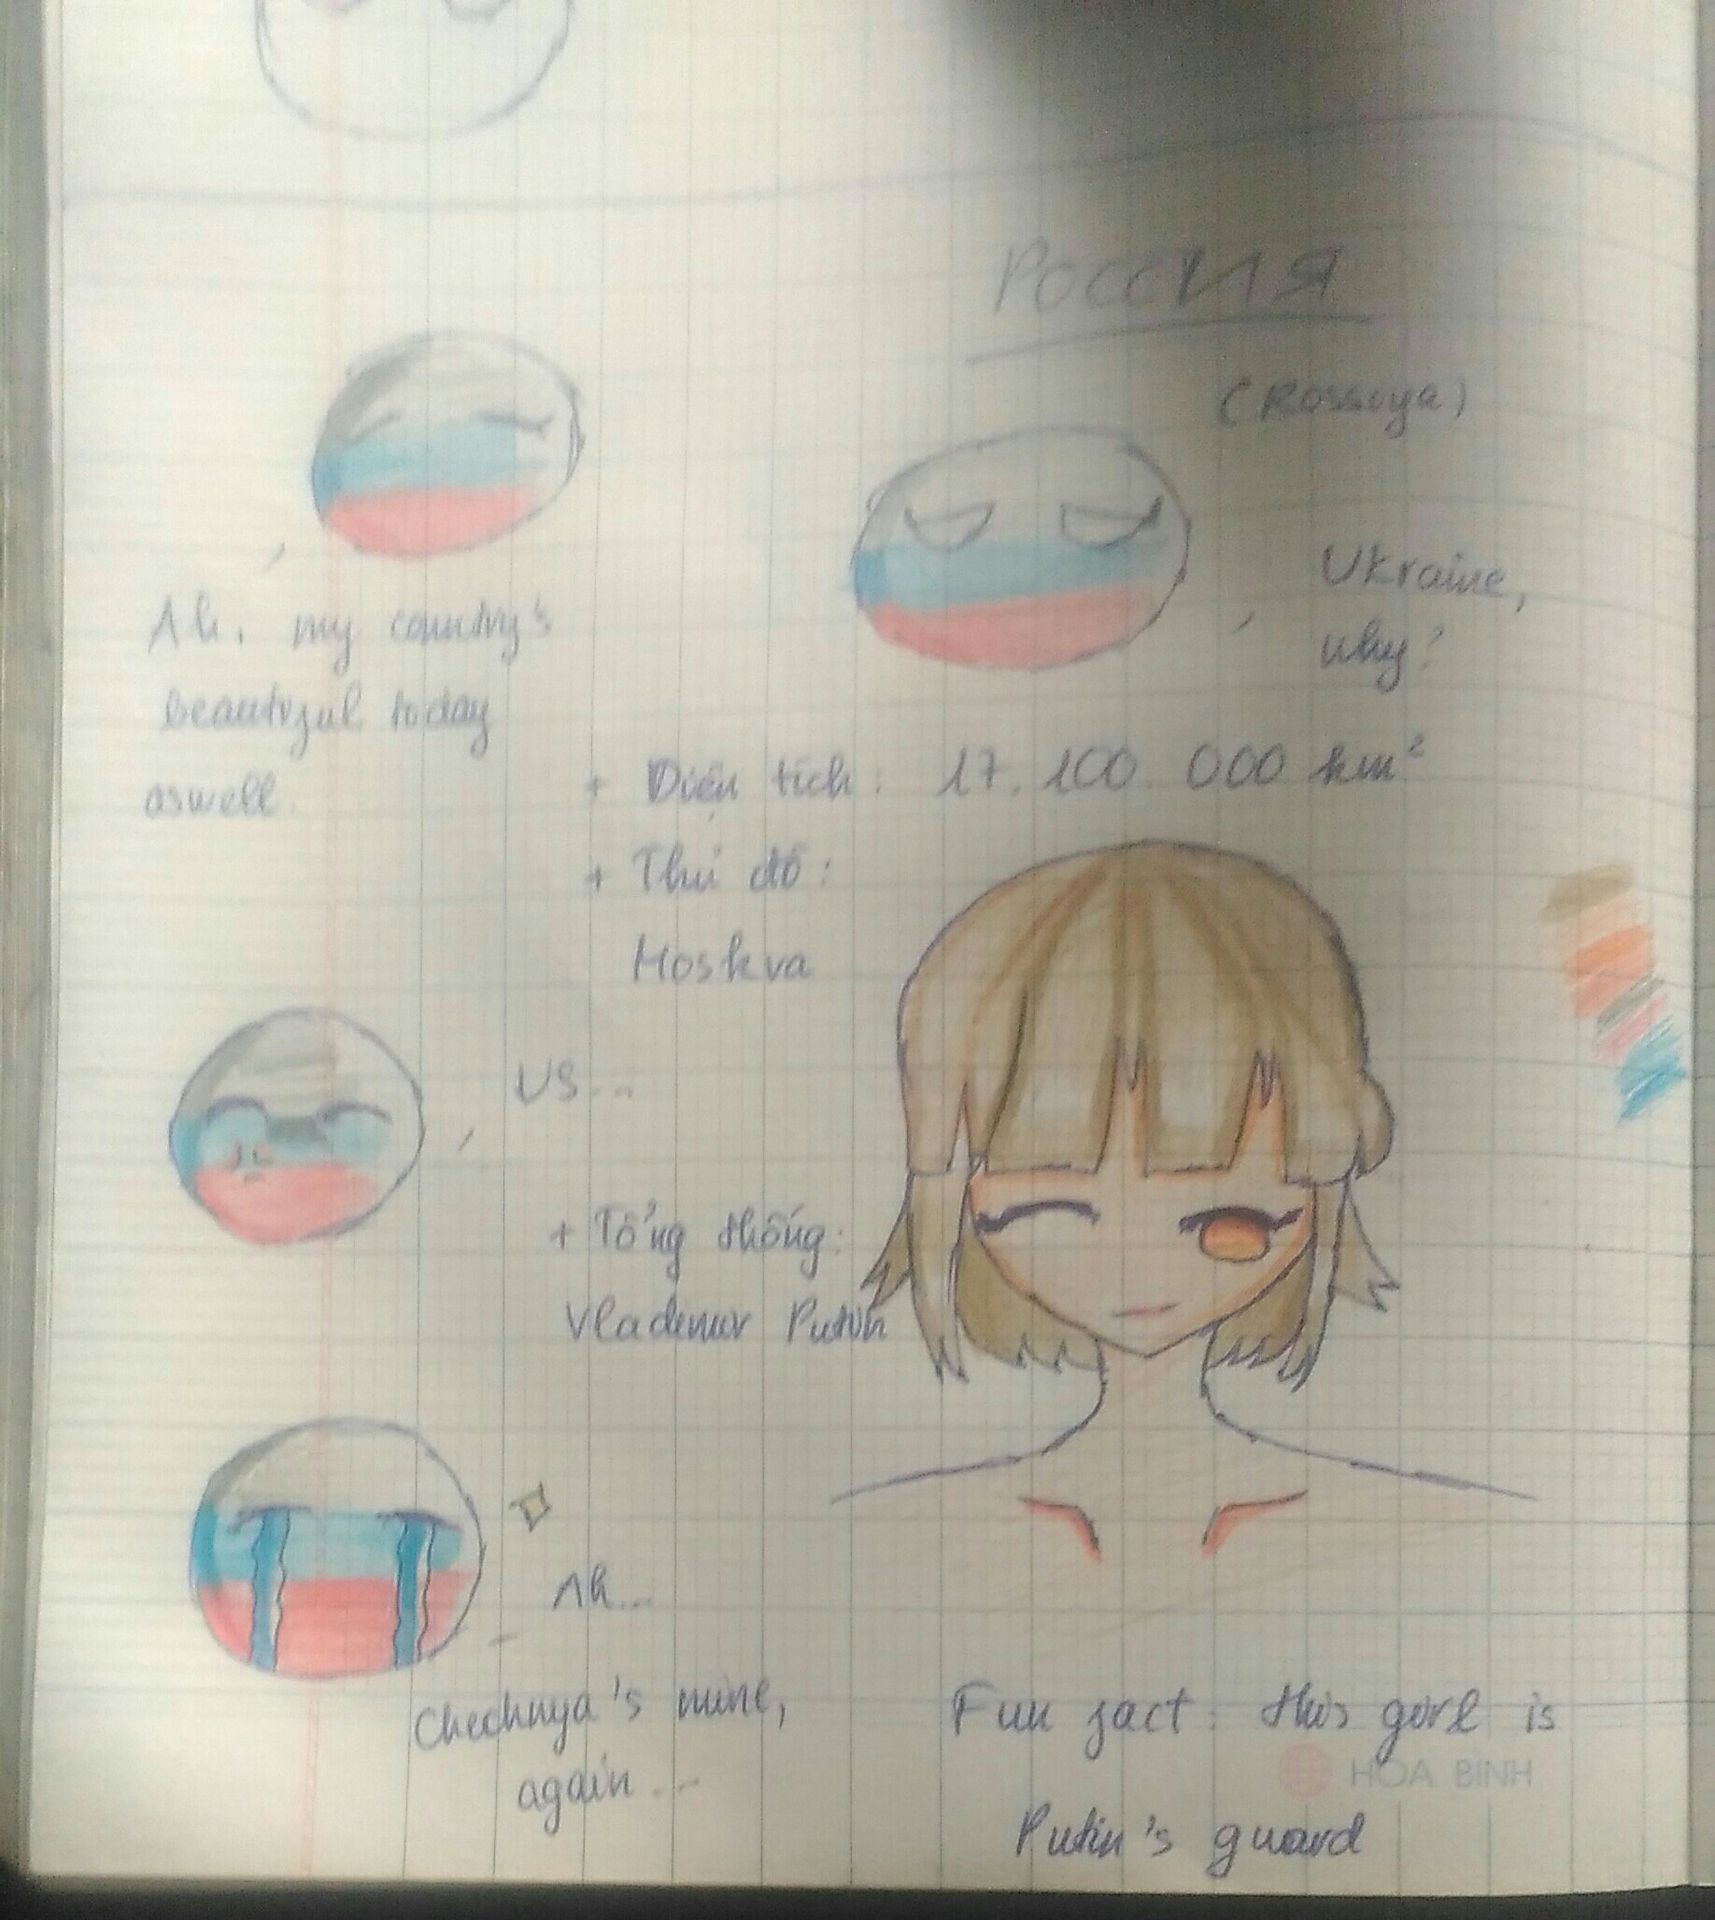 Россия
(Rossiya)
Ah, my country's
beautiful today
aswell.
Ukraine,
why?
+ Diện tích: 17.100.000 km²
+ Thủ đô:
Moskva
US...
+ Tổng thống:
Vladimir Putin
Ah...
Chechnya's mine,
again...
Fun fact: this girl is
HÒA BÌNH
Putin's guard